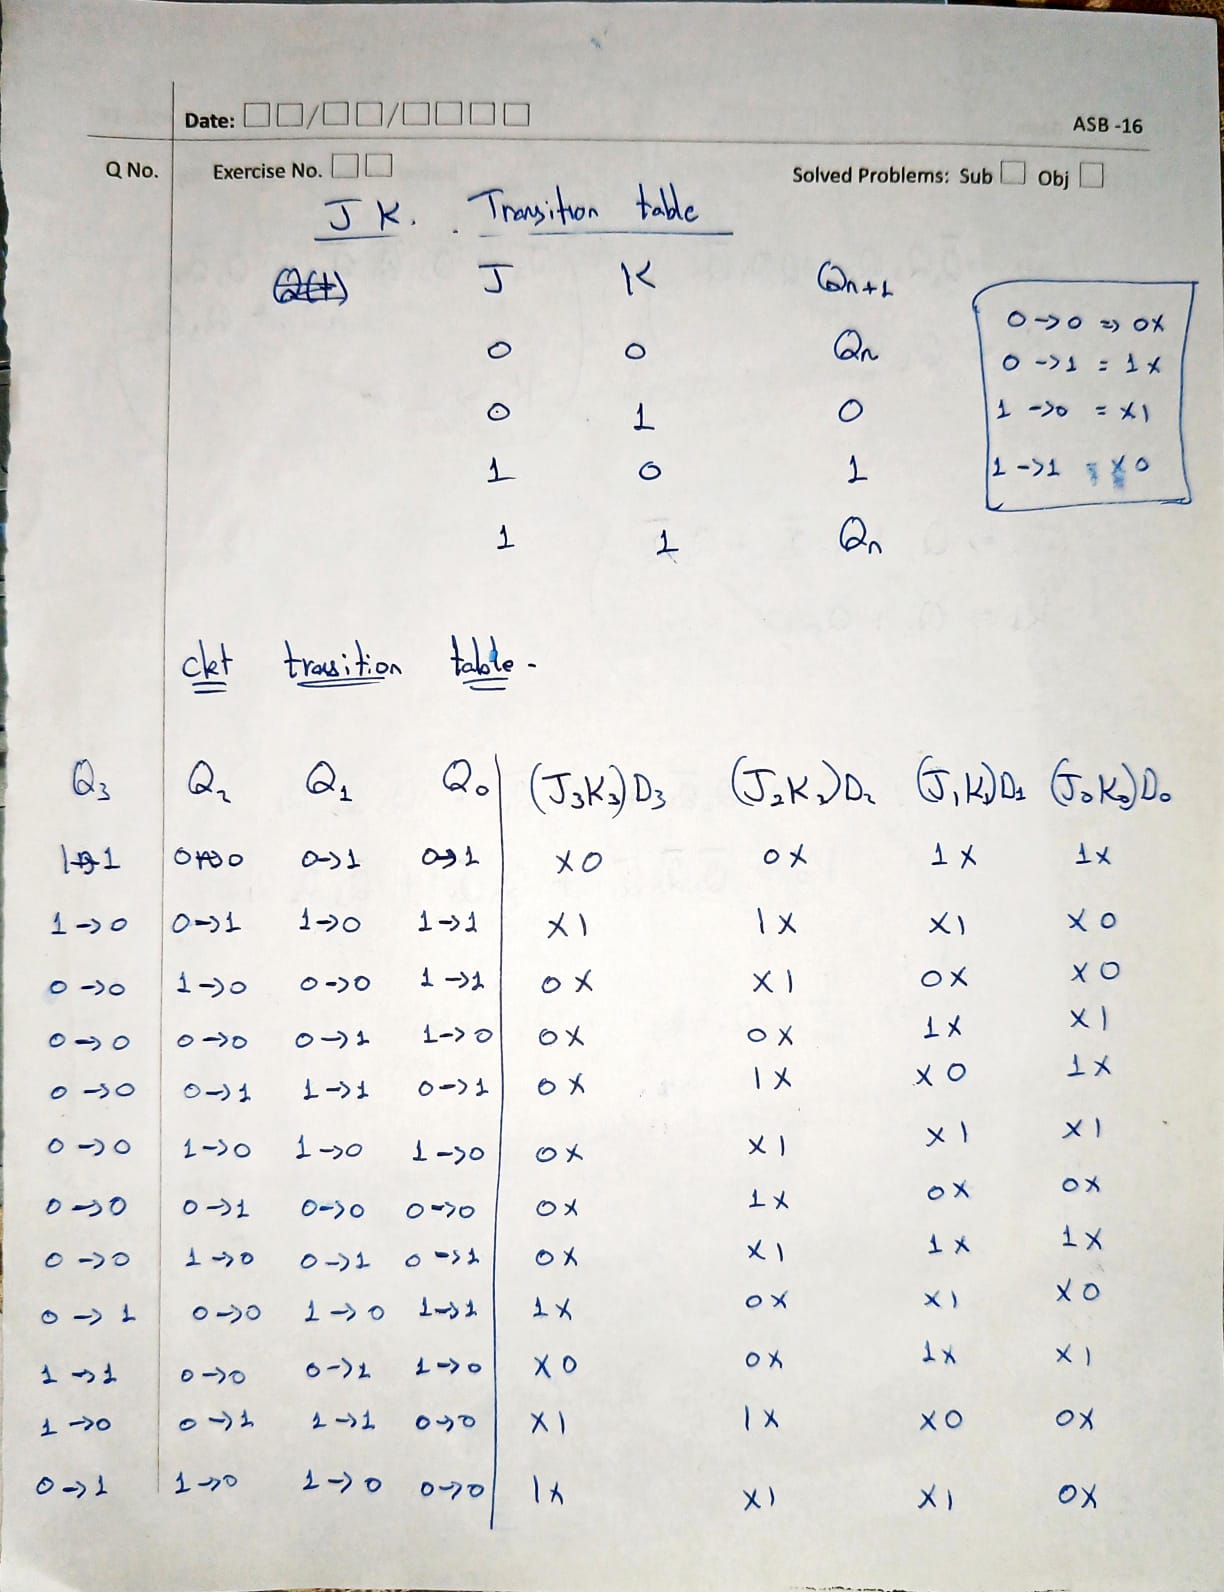 Date: □□/□□/□□□□ ASB -16
Q No. Exercise No. □□ Solved Problems: Sub □ Obj □
J K. . Transition table
J K Qn+1
0 0 Qn
0 1 0
1 0 1
1 1 Qn
0->0 => 0X
0->1 = 1X
1->0 = X1
1->1 = X0
ckt transition table -
Q3 Q2 Q1 Q0 (J3K3)D3 (J2K2)D2 (J1K1)D1 (J0K0)D0
1->1 0->0 0->1 0->1 X0 0X 1X 1X
1->0 0->1 1->0 1->1 X1 1X X1 X0
0->0 1->0 0->0 1->1 0X X1 0X X0
0->0 0->0 0->1 1->0 0X 0X 1X X1
0->0 0->1 1->1 0->1 0X 1X X0 1X
0->0 1->0 1->0 1->0 0X X1 X1 X1
0->0 0->1 0->0 0->0 0X 1X 0X 0X
0->0 1->0 0->1 0->1 0X X1 1X 1X
0->1 0->0 1->0 1->1 1X 0X X1 X0
1->1 0->0 0->1 1->0 X0 0X 1X X1
1->0 0->1 1->1 0->0 X1 1X X0 0X
0->1 1->0 1->0 0->0 1X X1 X1 0X